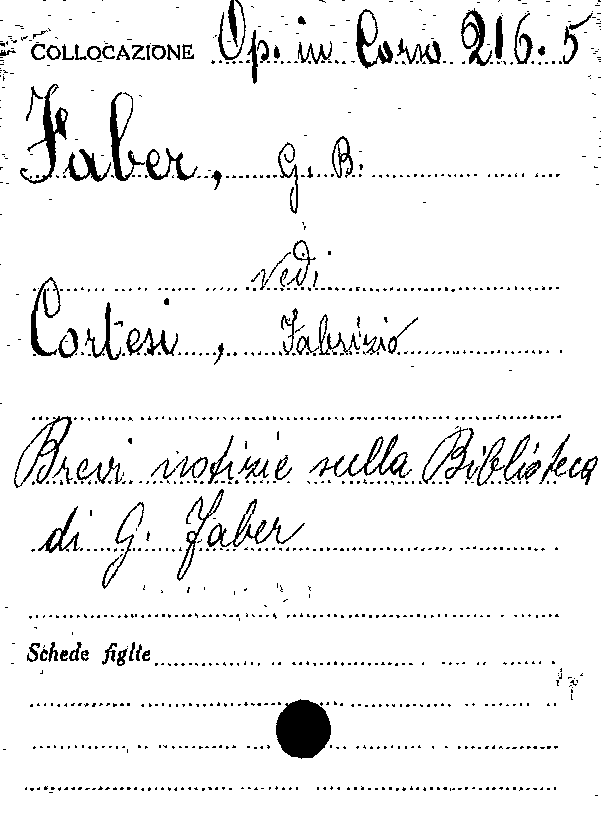 COLLOCAZIONE Op. in Corso 216. 5
Faber, G. B.
vedi
Cortesi, Fabrizio
Brevi notizie sulla Biblioteca
di G. Faber
Schede figlie